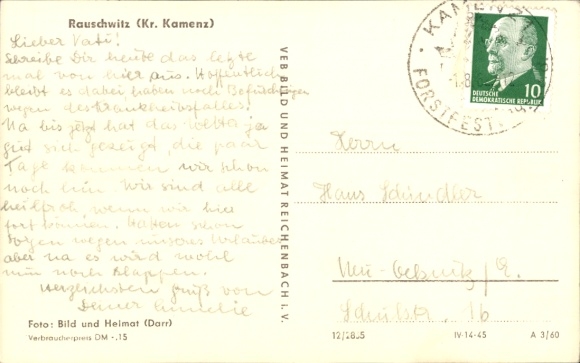 Rauschwitz (Kr. Kamenz)
Lieber Vati!
Schreibe Dir heute das letzte
mal von hier aus. Hoffentlich
bleibt es dabei haben noch Befürchtungen
wegen des Krankheitsfalles.
Na bis jetzt hat das Wetter ja
gut sich gezeigt, die paar
Tage kommen wir schon
noch hin. Wir sind alle
heilfroh, wenn wir hier
fort können. Hatten schon
Sorgen wegen unseres Urlaubes
aber na es wird wohl
nun noch klappen.
Herzlichsten Gruß von
Deiner
Foto: Bild und Heimat (Darr)
Verbraucherpreis DM -.15
VEB BILD UND HEIMAT REICHENBACH i. V.
KAMENZ
FORSTFEST
10
DEUTSCHE
DEMOKRATISCHE REPUBLIK
Herrn
Hans Schindler
Neu-Oelsnitz/E.
Schulstr. 16
12/2805 IV-14-45 A 3/60